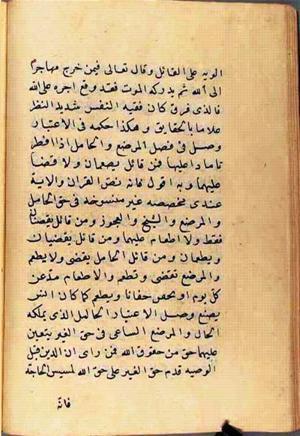 الدية على القاتل وقال تعالى فيمن خرج مهاجرا
الى الله ثم يدركه الموت فقد وقع اجره على الله
فالذى فرق كان فقيه النفس شديد النظر
علاما بالحقايق وهكذا حكمه فى الاعتبار
وصل فى فصل المرضع والحامل اذا افطرتا
ماذا عليهما فمن قائل يطعمان ولا قضا
عليهما وبه اقول فانه نص القران والاية
عندى مخصصه غير منسوخه فى حق الحامل
والمرضع والشيخ والعجوز ومن قائل يقضيان
فقط ولا اطعام عليهما ومن قائل يقضيان
ويطعمان ومن قائل الحامل يقضى ولا يطعم
والمرضع تقضى وتطعم والاطعام مد عن
كل يوم او يحفن حفانا ويطعم كما كان انس
يصنع وصل الاعتبار الحامل الذى يملكه
الحال والمرضع الساعى فى حق الغير يتعين
عليهما حق من حقوق الله فمن راى ان الدين قبل
الوصيه قدم حق الغير على حق الله لمسيس الحاجة
فانه